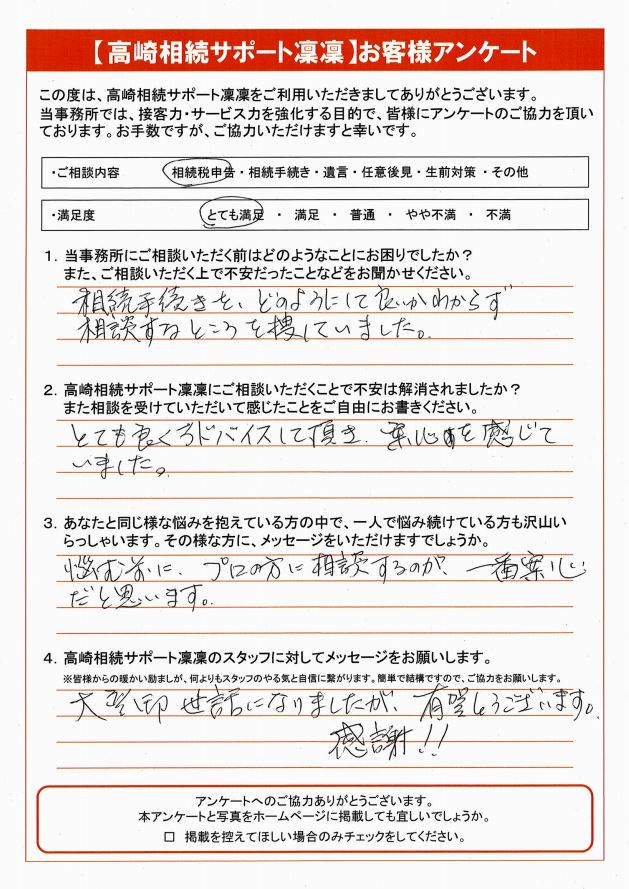 【高崎相続サポート凛凛】お客様アンケート
この度は、高崎相続サポート凛凛をご利用いただきましてありがとうございます。
当事務所では、接客力・サービス力を強化する目的で、皆様にアンケートのご協力を頂い
ております。お手数ですが、ご協力いただけますと幸いです。
・ご相談内容 相続税申告・相続手続き・遺言・任意後見・生前対策・その他
・満足度 とても満足 ・ 満足 ・ 普通 ・ やや不満 ・ 不満
1．当事務所にご相談いただく前はどのようなことにお困りでしたか？
また、ご相談いただく上で不安だったことなどをお聞かせください。
相続手続きを、どのようにして良いかわからず
相談するところを捜していました。
2．高崎相続サポート凛凛にご相談いただくことで不安は解消されましたか？
また相談を受けていただいて感じたことをご自由にお書きください。
とても良くアドバイスして頂き、案心を感じて
いました。
3．あなたと同じ様な悩みを抱えている方の中で、一人で悩み続けている方も沢山い
らっしゃいます。その様な方に、メッセージをいただけますでしょうか。
悩む前に、プロの方に相談するのが、一番案心
だと思います。
4．高崎相続サポート凛凛のスタッフに対してメッセージをお願いします。
※皆様からの暖かい励ましが、何よりもスタッフのやる気と自信に繋がります。簡単で結構ですので、ご協力をお願いします。
大変御世話になりましたが、有難うございます。
感謝!!
アンケートへのご協力ありがとうございます。
本アンケートと写真をホームページに掲載しても宜しいでしょうか。
□ 掲載を控えてほしい場合のみチェックをしてください。